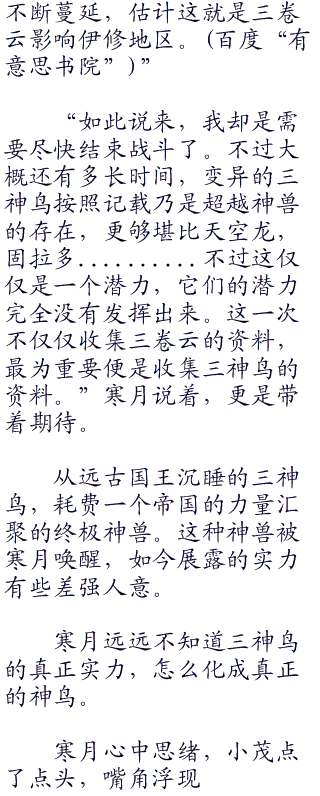 不断蔓延，估计这就是三卷
云影响伊修地区。(百度“有
意思书院”)”
“如此说来，我却是需
要尽快结束战斗了。不过大
概还有多长时间，变异的三
神鸟按照记载乃是超越神兽
的存在，更够堪比天空龙，
固拉多..........不过这仅
仅是一个潜力，它们的潜力
完全没有发挥出来。这一次
不仅仅收集三卷云的资料，
最为重要便是收集三神鸟的
资料。”寒月说着，更是带
着期待。
从远古国王沉睡的三神
鸟，耗费一个帝国的力量汇
聚的终极神兽。这种神兽被
寒月唤醒，如今展露的实力
有些差强人意。
寒月远远不知道三神鸟
的真正实力，怎么化成真正
的神鸟。
寒月心中思绪，小茂点
了点头，嘴角浮现